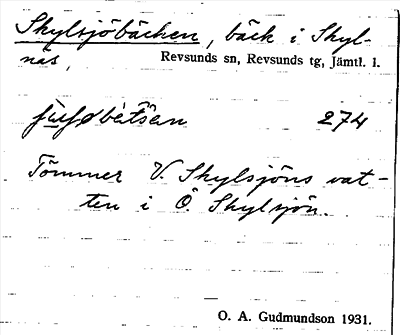 Skylsjöbäcken, bäck i Skyl-
näs, Revsunds sn, Revsunds tg, Jämtl. l.
274
Tömmer V. Skylsjöns vat-
ten i Ö. Skylsjön.
O. A. Gudmundson 1931.